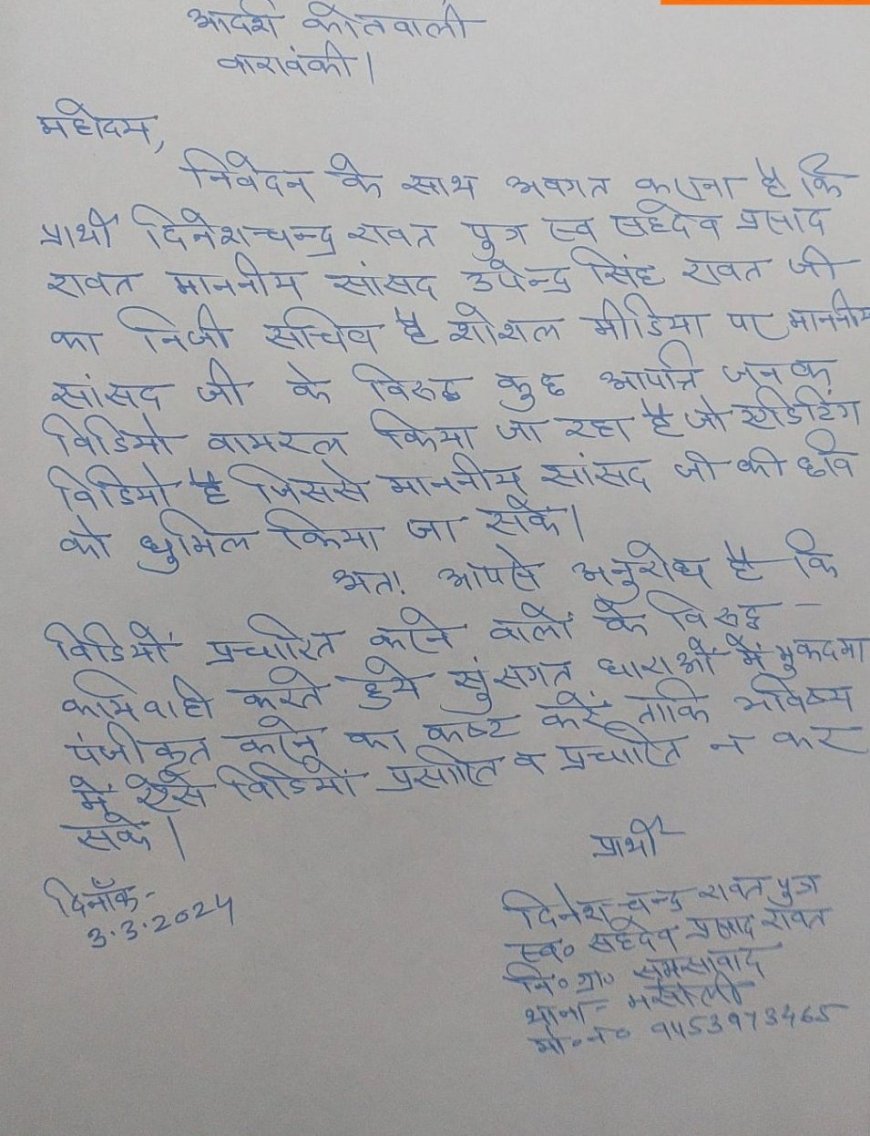 आदर्श कोतवाली
बाराबंकी।
महोदय,
निवेदन के साथ अवगत कराना है कि
प्रार्थी दिनेशचन्द्र रावत पुत्र स्व सहदेव प्रसाद
रावत माननीय सांसद उपेन्द्र सिंह रावत जी
का निजी सचिव है शोशल मीडिया पर माननीय
सांसद जी के विरुद्ध कुछ आपत्ति जनक
विडियो वायरल किया जा रहा है जो एडिटिंग
विडियो है जिससे माननीय सांसद जी की छवि
को धुमिल किया जा सके।
अतः आपसे अनुरोध है कि
विडियों प्रचारित करने वालों के विरुद्ध -
कार्यवाही करते हुये सुसंगत धाराओं में मुकदमा
पंजीकृत करने का कष्ट करें ताकि भविष्य
में ऐसे विडियों प्रसारित व प्रचारित न कर
सके।
प्रार्थी
दिनाँक-
3.3.2024
दिनेश चन्द्र रावत पुत्र
स्व० सहदेव प्रसाद रावत
नि० ग्रा०
थाना- मसौली
मो०न० 9453973465